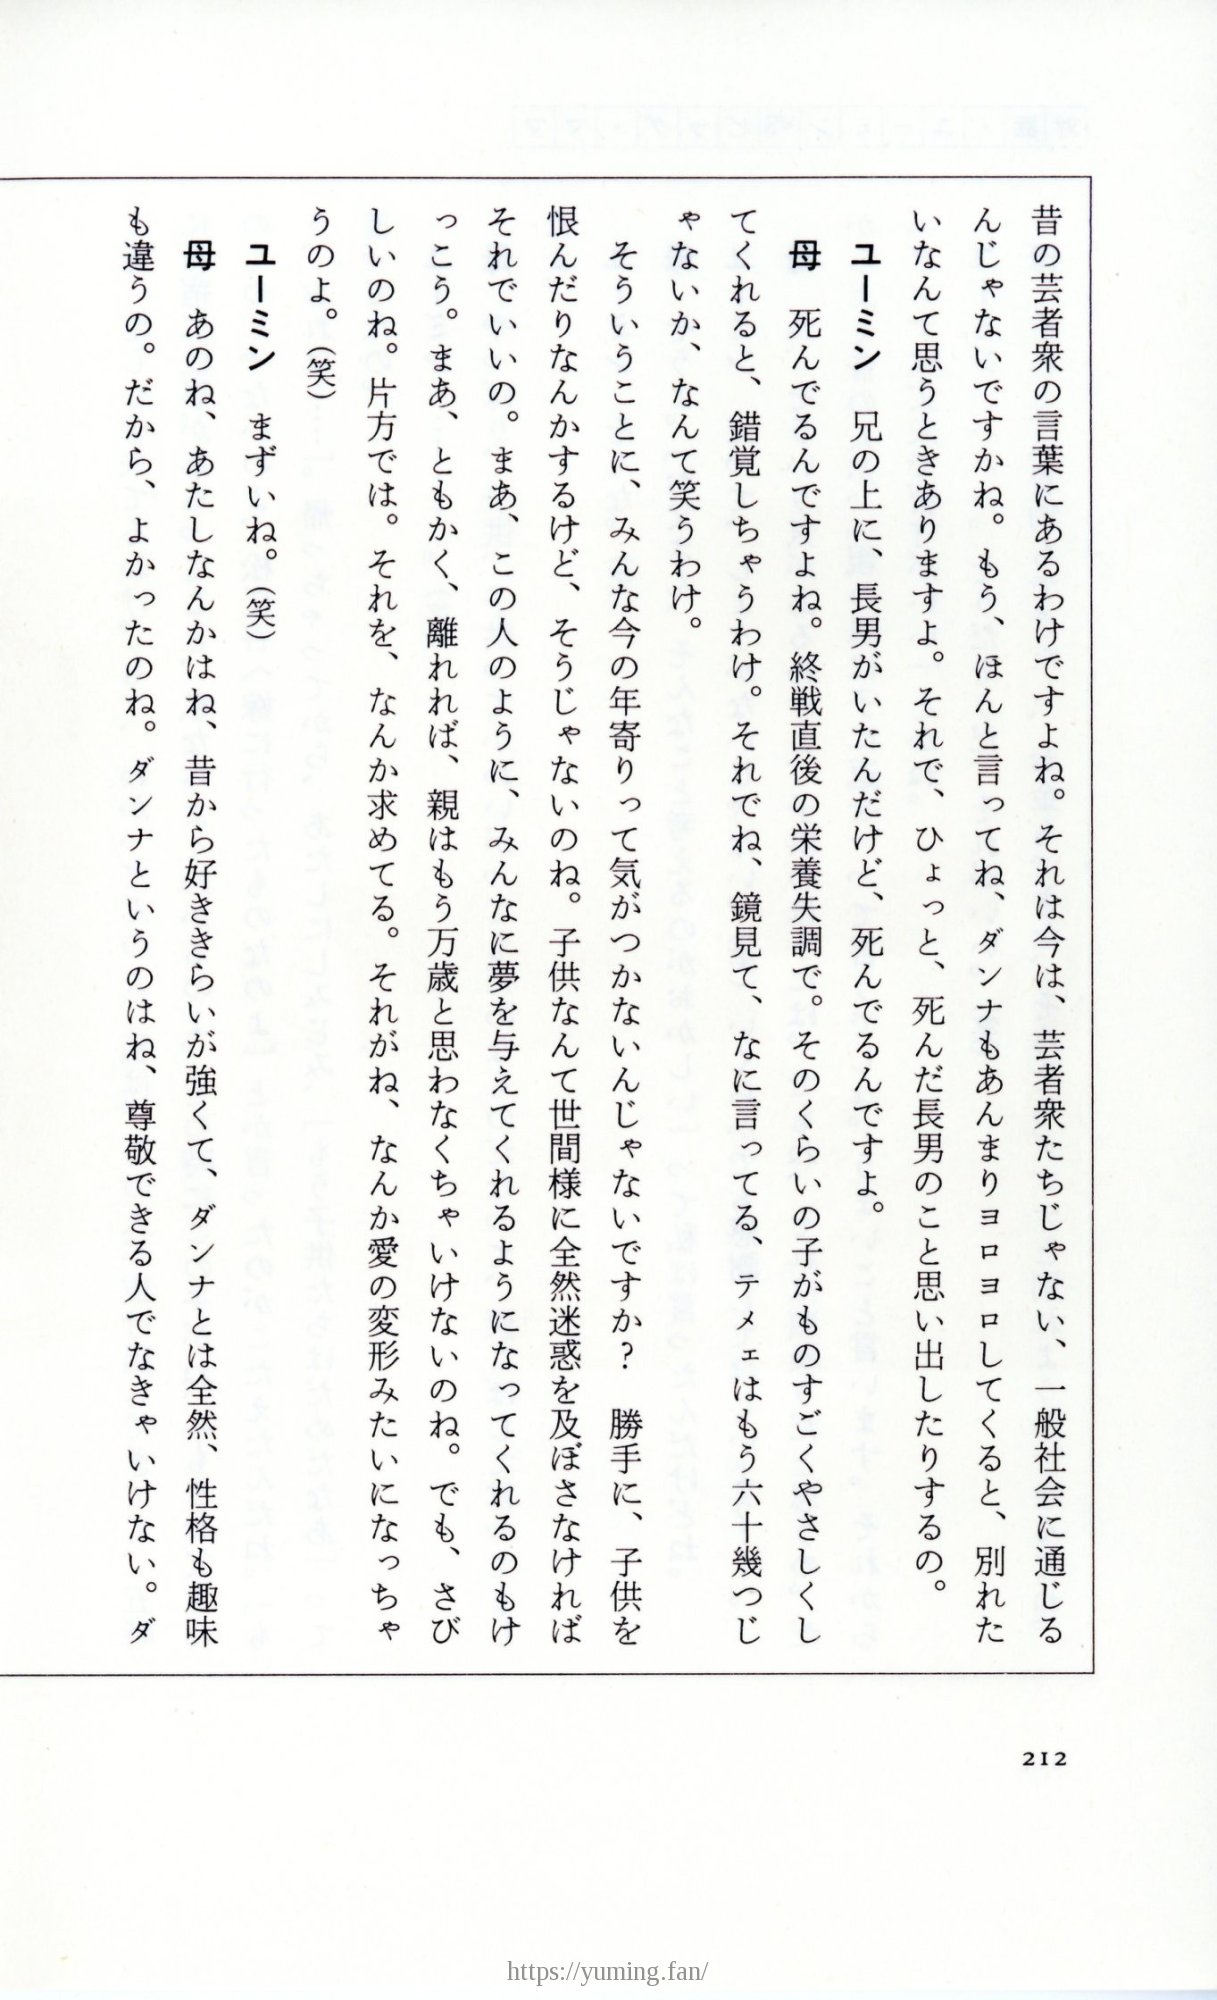 昔の芸者衆の言葉にあるわけですよね。それは今は、芸者衆たちじゃない、一般社会に通じる
んじゃないですかね。もう、ほんと言ってね、ダンナもあんまりヨロヨロしてくると、別れた
いなんて思うときありますよ。それで、ひょっと、死んだ長男のこと思い出したりするの。
ユーミン　兄の上に、長男がいたんだけど、死んでるんですよ。
母　死んでるんですよね。終戦直後の栄養失調で。そのくらいの子がものすごくやさしくし
てくれると、錯覚しちゃうわけ。それでね、鏡見て、なに言ってる、テメェはもう六十幾つじ
ゃないか、なんて笑うわけ。
そういうことに、みんな今の年寄りって気がつかないんじゃないですか？　勝手に、子供を
恨んだりなんかするけど、そうじゃないのね。子供なんて世間様に全然迷惑を及ぼさなければ
それでいいの。まあ、この人のように、みんなに夢を与えてくれるようになってくれるのもけ
っこう。まあ、ともかく、離れれば、親はもう万歳と思わなくちゃいけないのね。でも、さび
しいのね。片方では。それを、なんか求めてる。それがね、なんか愛の変形みたいになっちゃ
うのよ。（笑）
ユーミン　まずいね。（笑）
母　あのね、あたしなんかはね、昔から好ききらいが強くて、ダンナとは全然、性格も趣味
も違うの。だから、よかったのね。ダンナというのはね、尊敬できる人でなきゃいけない。ダ
212
https://yuming.fan/